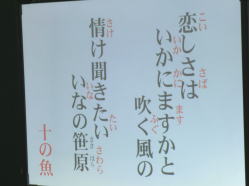 恋しさは
こい
さば
いかにますかと
いか
かに
ます
吹く風の
ふぐ
情け聞きたい
さけ
たい
いなの笹原
いな
さわら
ささ
はら
十の魚